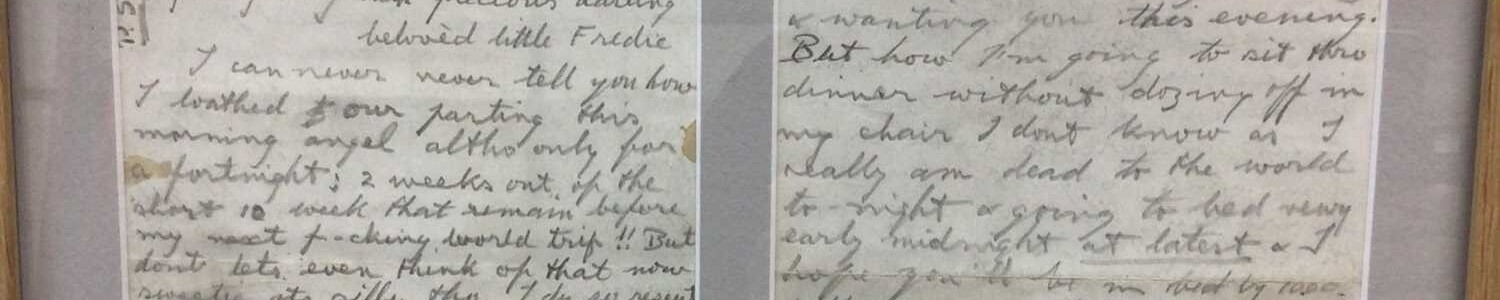 precious darling
beloved little Fredie
I can never never tell you how
I loathed our parting this
morning angel altho' only for
a fortnight; 2 weeks out of the
short 10 week that remain before
my next f-cking world trip!! But
dont lets even think of that now
sweetie its silly tho' I do so resent
& wanting you this evening.
But how I'm going to sit thro
dinner without dozing off in
my chair I dont know as I
really am dead to the world
to-night & going to bed very
early midnight at latest & I
hope you'll be in bed by